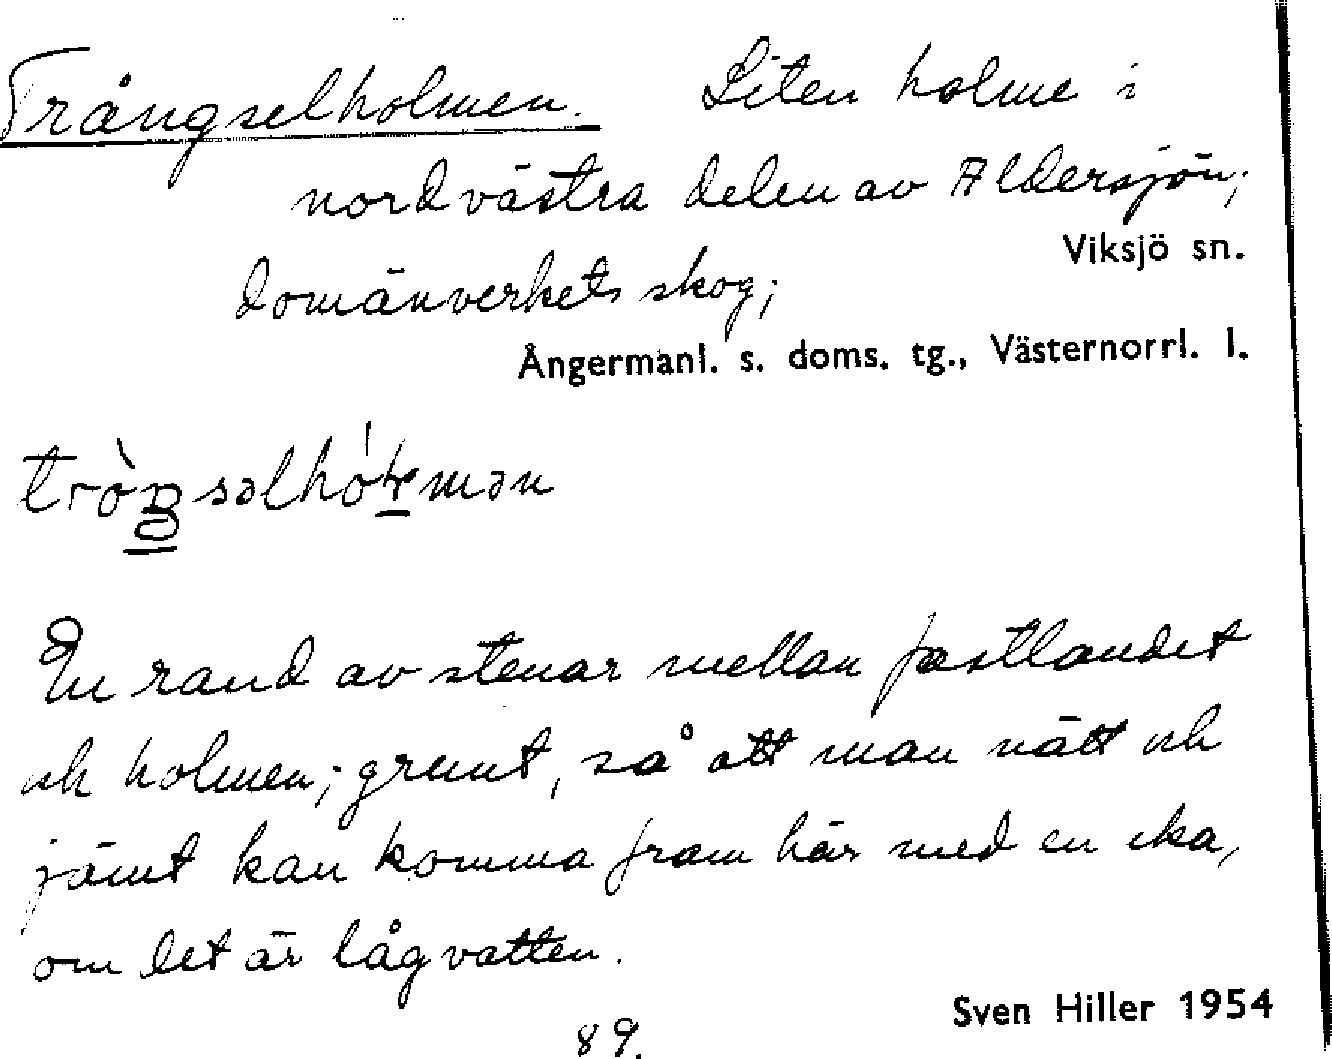 Trångselholmen. Liten holme i
nordvästra delen av Aldersjön;
Viksjö sn.
domänverkets skog;
Ångermanl. s. doms. tg., Västernorrl. l.
En rand av stenar mellan fastlandet
och holmen; grunt, så att man nätt och
jämt kan komma fram här med en eka,
om det är lågvatten.
Sven Hiller 1954
89.